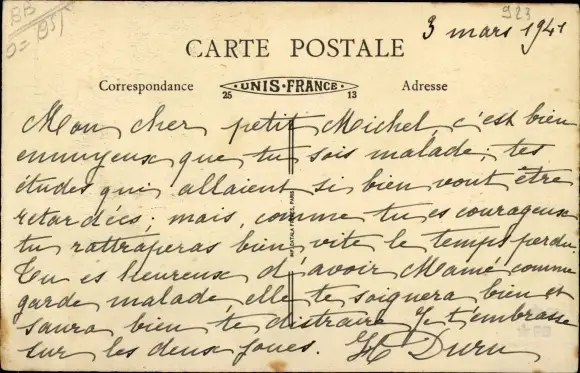 BB
0 = 95
923
3 mars 1941
CARTE POSTALE
Correspondance
UNIS-FRANCE
25
13
Adresse
Mon cher petit Michel, c'est bien
ennuyeux que tu sois malade; tes
études qui allaient si bien vont être
retardées; mais, comme tu es courageux
tu rattraperas bien vite le temps perdu.
Tu es heureux d'avoir Mamé comme
garde malade, elle te soignera bien et
saura bien te distraire. Je t'embrasse
sur les deux joues. H Duru
IMP. CATALA FRERES, PARIS